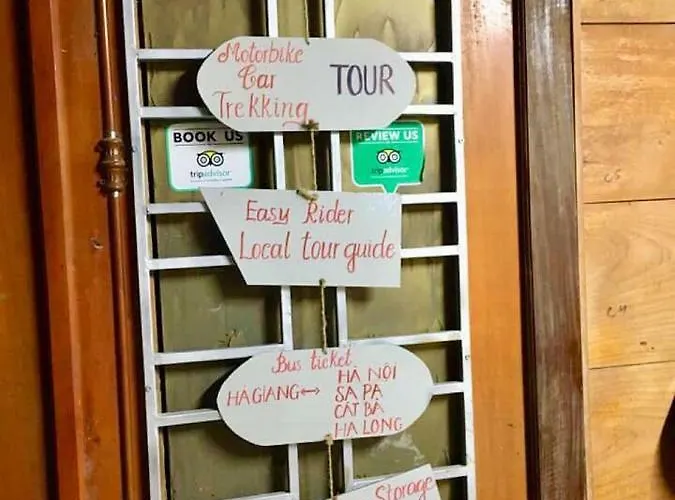 Motorbike
Car
Trekking
TOUR
BOOK US
tripadvisor
REVIEW US
tripadvisor
Easy Rider
Local tour guide
Bus ticket
HÀ GIANG ↔
HÀ NỘI
SA PA
CÁT BÀ
HẠ LONG
Storage